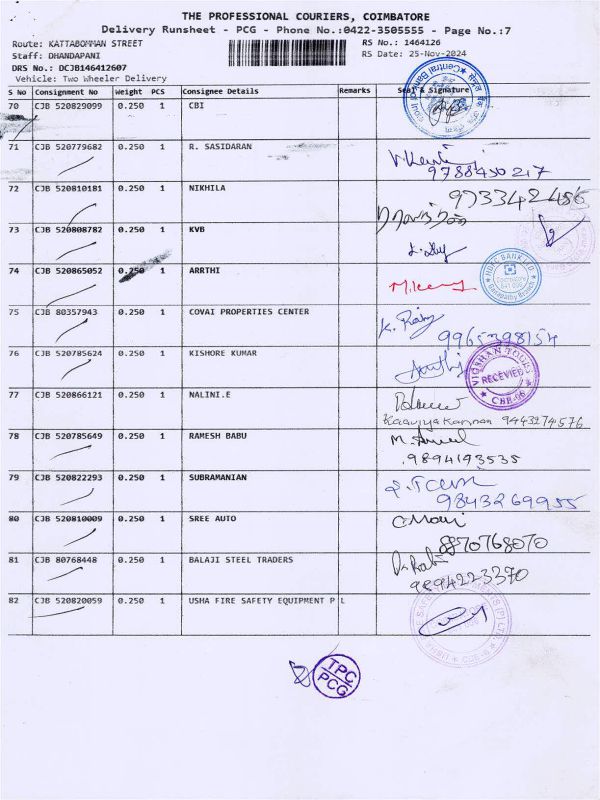 THE PROFESSIONAL COURIERS, COIMBATORE
Delivery Runsheet - PCG - Phone No.:0422-3505555 - Page No.:7
Route: KATTABOMMAN STREET
RS No.: 1464126
Staff: DHANDAPANI
RS Date: 25-Nov-2024
DRS No.: DCJB146412607
Vehicle: Two Wheeler Delivery
S No Consignment No Weight PCS Consignee Details Remarks Seal & Signature
70 CJB 520829099 0.250 1 CBI
Central Bank
71 CJB 520779682 0.250 1 R. SASIDARAN
9788430217
72 CJB 520810181 0.250 1 NIKHILA
9733342486
73 CJB 520808782 0.250 1 KVB
74 CJB 520865052 0.250 1 ARRTHI
HDFC BANK LTD
Ganapathy Branch
75 CJB 80357943 0.250 1 COVAI PROPERTIES CENTER
9965398154
76 CJB 520785624 0.250 1 KISHORE KUMAR
RECEVIED
CBE-06
77 CJB 520866121 0.250 1 NALINI.E
Kaavya Kannan 9443274576
78 CJB 520785649 0.250 1 RAMESH BABU
9894193535
79 CJB 520822293 0.250 1 SUBRAMANIAN
9843269955
80 CJB 520810009 0.250 1 SREE AUTO
8870768070
81 CJB 80768448 0.250 1 BALAJI STEEL TRADERS
9894223370
82 CJB 520820059 0.250 1 USHA FIRE SAFETY EQUIPMENT P L
TPC
PCG